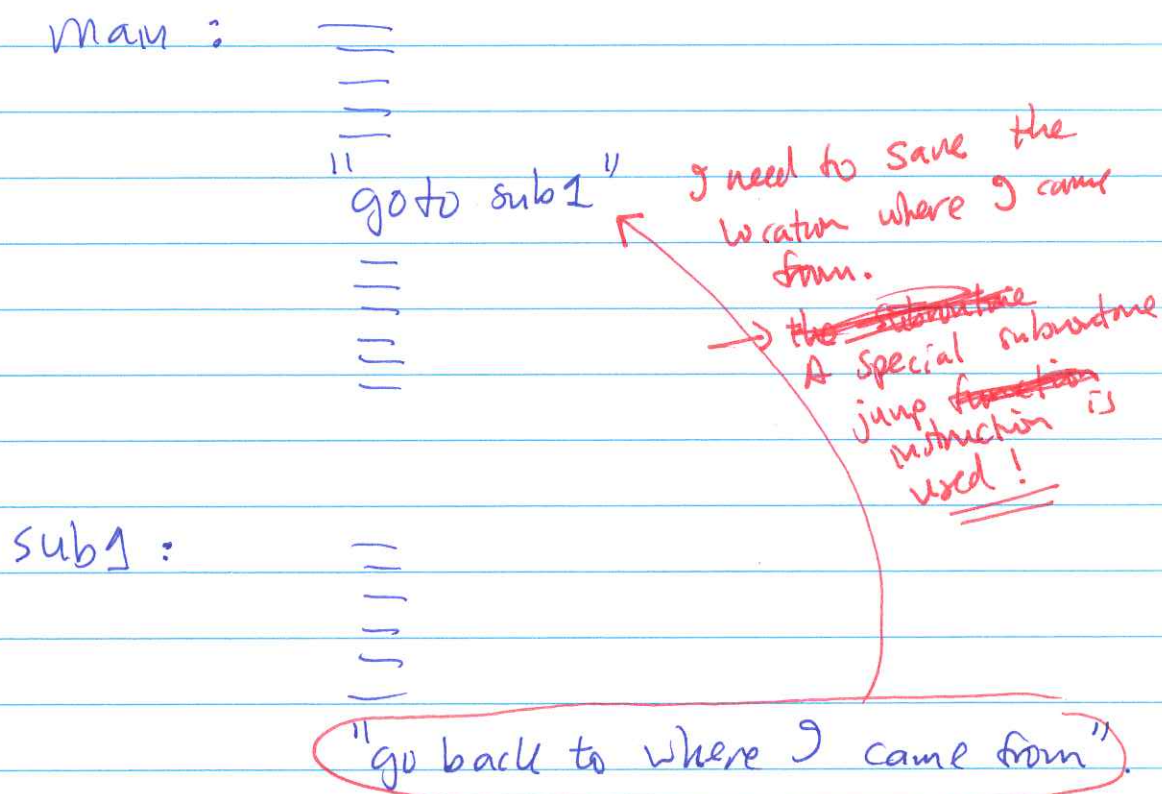 main :
"goto sub1"
I need to save the
location where I came
from.
→ the subroutine
A special subroutine
jump function
instruction is
used!
sub1 :
"go back to where I came from".